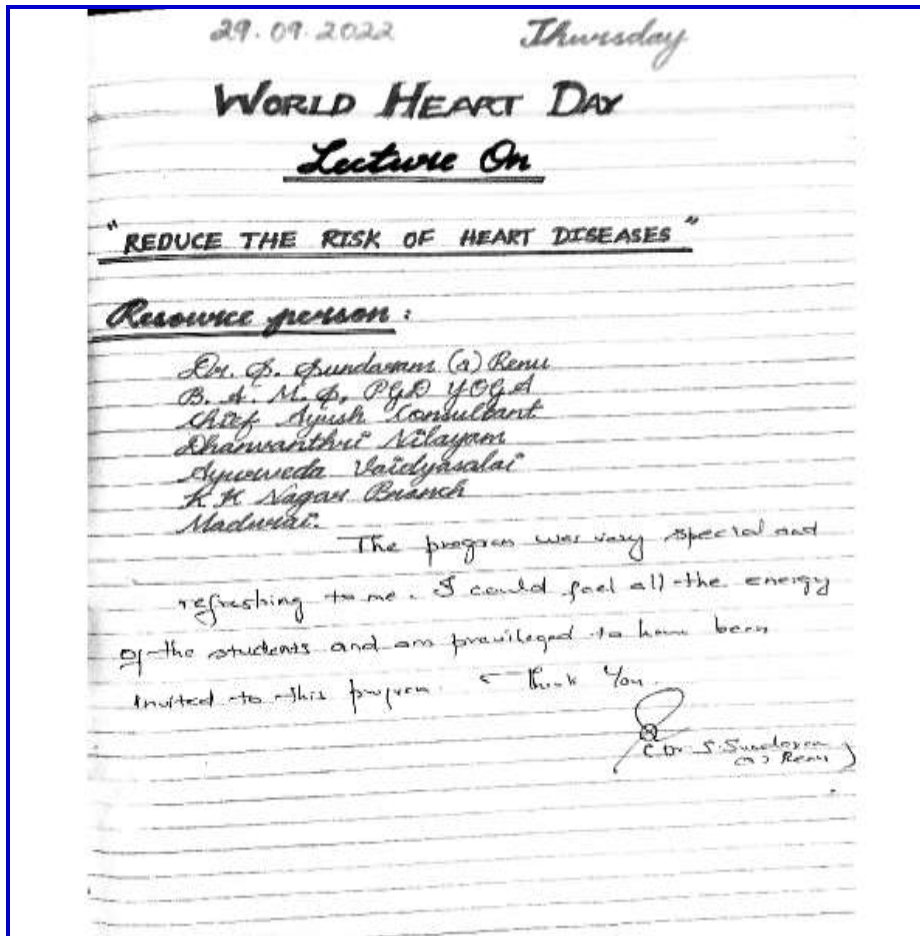 29.09.2022 Thursday
WORLD HEART DAY
Lecture On
"REDUCE THE RISK OF HEART DISEASES"
Resource person :
Dr. S. Sundaram (a) Renu
B. A. M. S, PGD YOGA
Chief Ayush Consultant
Dhanwanthri Nilayam
Ayurveda Vaidyasalai
K K Nagar Branch
Madurai.
The program was very special and
refreshing to me. I could feel all the energy
of the students and am previleged to have been
invited to this program. Thank You.
(Dr S. Sundaram
(a) Renu)